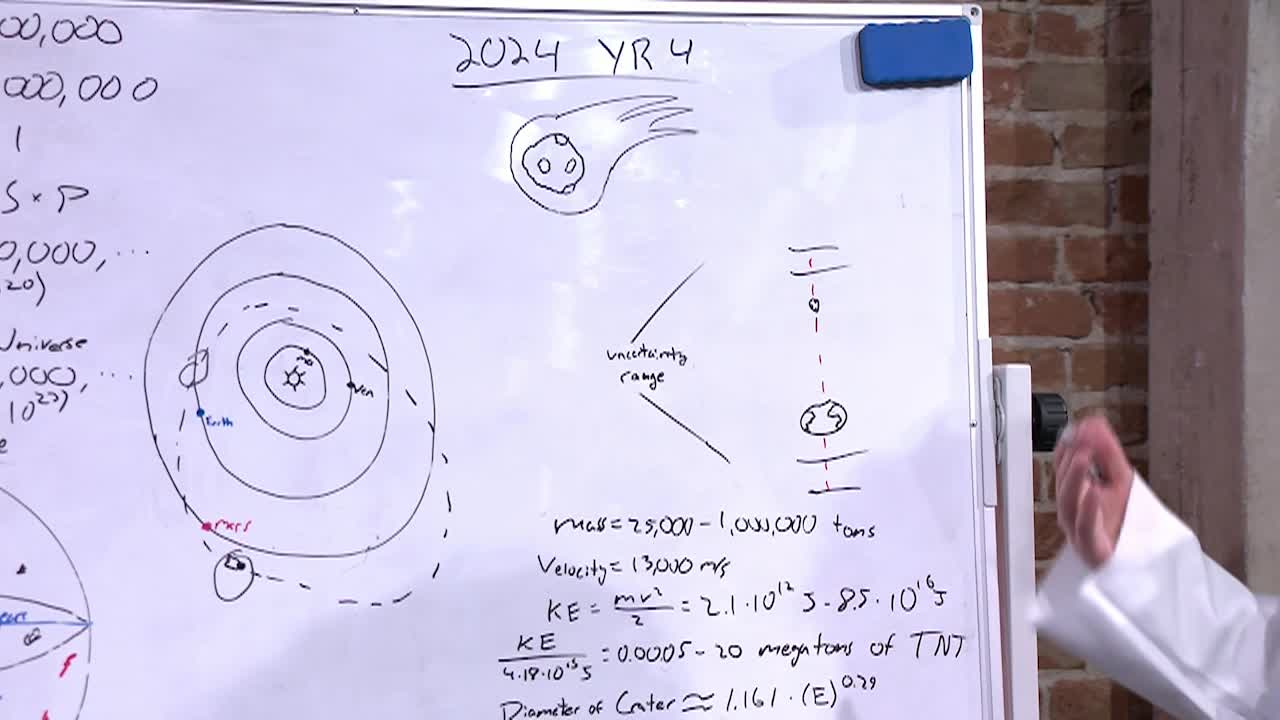 00,000
000,000
1
S × P
0,000, ...
20)
Universe
,000, ...
10²³)
e
2024 YR4
Ven
Earth
mars
uncertainty
range
mass = 25,000 - 1,000,000 tons
Velocity = 13,000 m/s
KE = mv²/2 = 2.1·10¹² J - 8.5·10¹⁶ J
KE/4.18·10¹⁵ J = 0.0005 - 20 megatons of TNT
Diameter of Crater ≈ 1.161·(E)^0.29